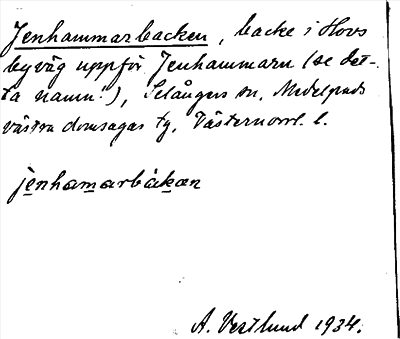 Jenhammarbacken, backe i Hovs
byväg uppför Jenhammarn (se det-
ta namn!), Selångers sn, Medelpads
västra domsagas tg, Västernorrl. l.
jenhamarbàkæn
A. Vestlund 1934.